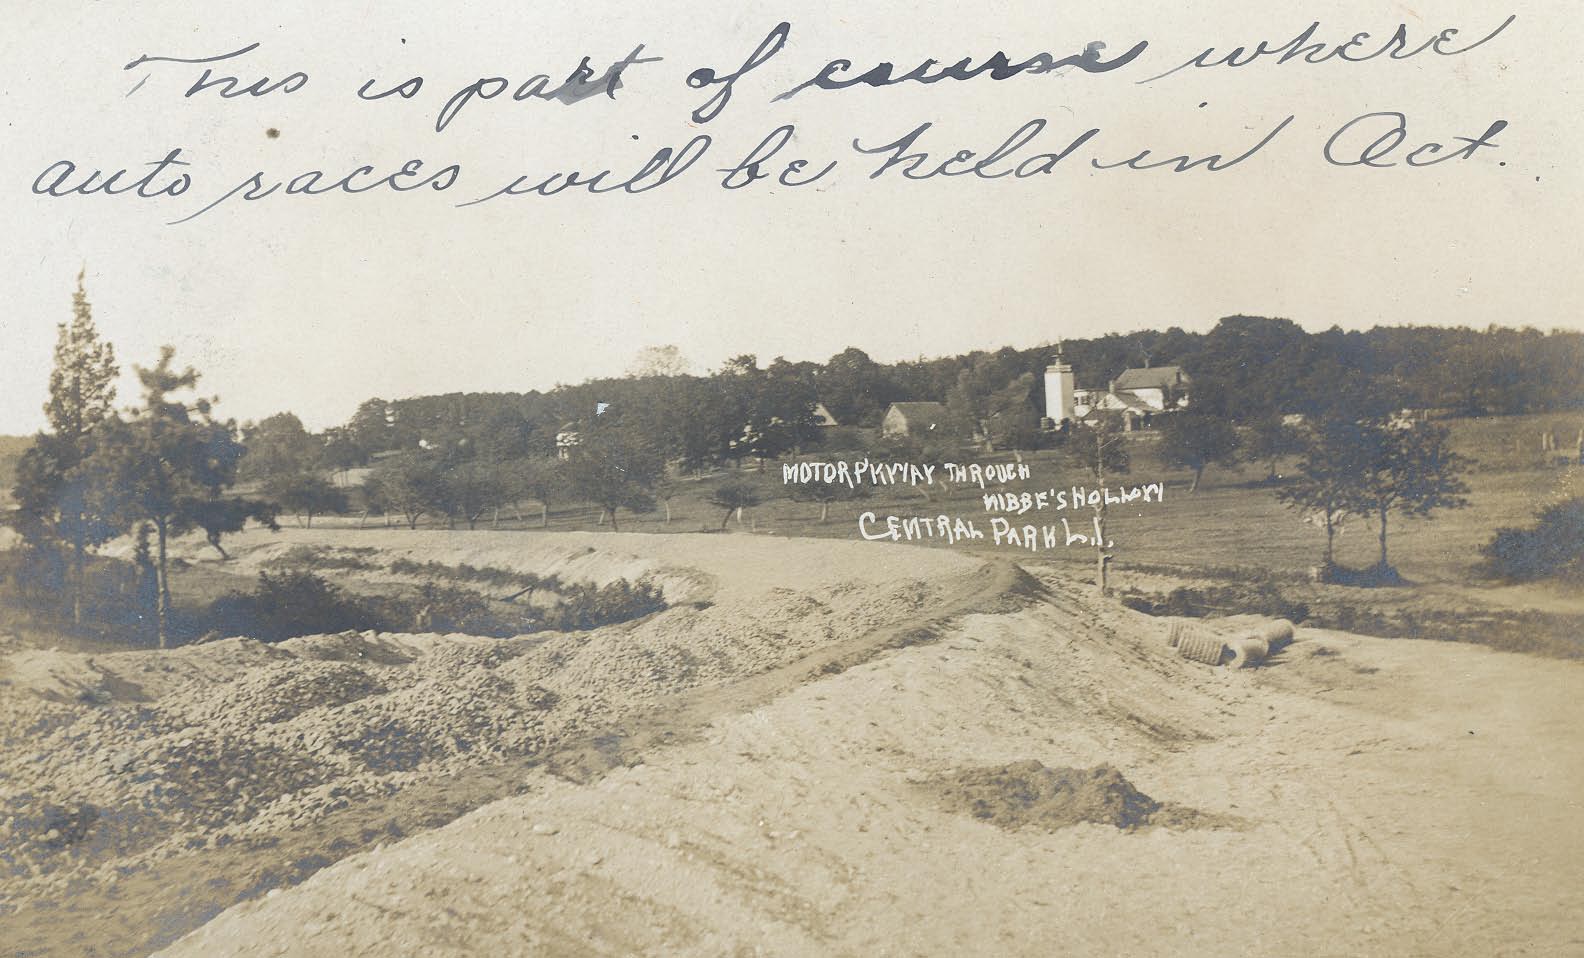 This is part of course where
auto races will be held in Oct.
MOTOR P'KWAY THROUGH
NIBBE'S HOLLOW
CENTRAL PARK L.I.